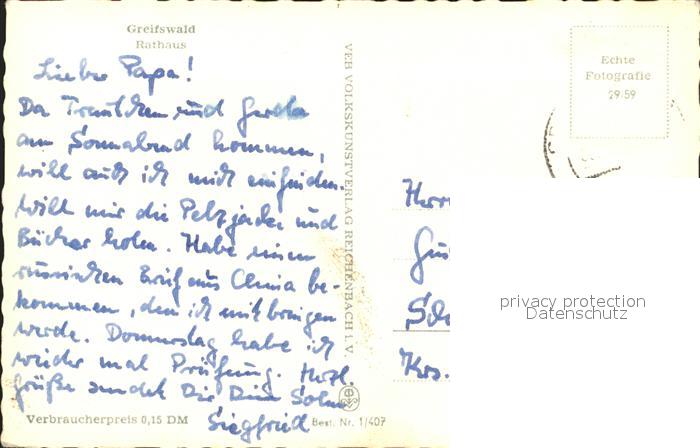 Greifswald
Rathaus
Lieber Papa!
Da Trautchen und Gerda
am Sonnabend kommen,
will auch ich mich einfinden.
Will mir die Pelzjacke und
Bücher holen. Habe einen
russischen Brief aus China be-
kommen, den ich mitbringen
werde. Donnerstag habe ich
wieder mal Prüfung. Herzl.
Grüße sendet Dir Dein Sohn
Siegfried
Verbraucherpreis 0,15 DM
Best. Nr. 1/407
VEB VOLKSKUNSTVERLAG REICHENBACH i.V.
Echte
Fotografie
29/59
Herr
Krs.
privacy protection
Datenschutz